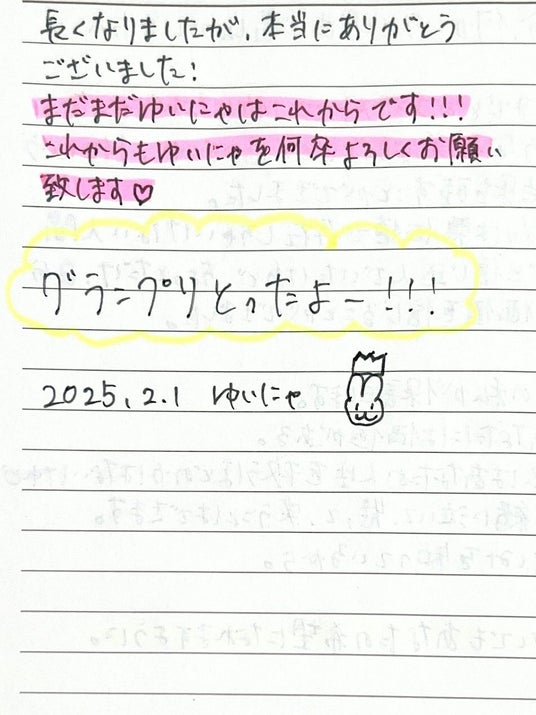 長くなりましたが、本当にありがとう
ございました!
まだまだゆいにゃはこれからです!!!
これからもゆいにゃを何卒よろしくお願い
致します♡
グランプリとったよー!!!
2025,2.1 ゆいにゃ